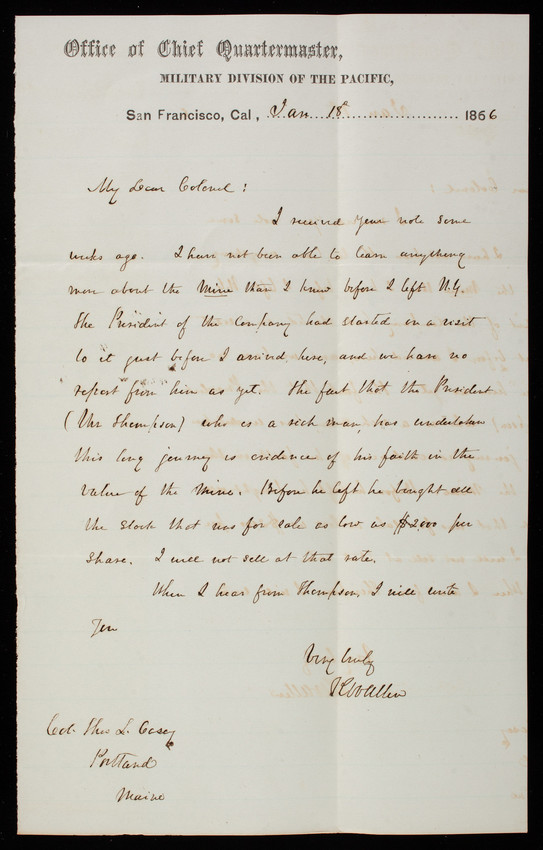 Office of Chief Quartermaster,
MILITARY DIVISION OF THE PACIFIC,
San Francisco, Cal., Jan 18th 1866
My Dear Colonel:
I received your note some
weeks ago. I have not been able to learn anything
more about the Mine than I knew before I left N.Y.
The President of the Company had started on a visit
to it just before I arrived here, and we have no
report from him as yet. The fact that the President
(Mr Thompson) who is a rich man, has undertaken
this long journey is evidence of his faith in the
value of the Mine. Before he left he bought all
the stock that was for sale as low as $2000 per
share. I will not sell at that rate.
When I hear from Thompson, I will write
you
Very truly
R Allen
Col. Thos L. Casey
Portland
Maine